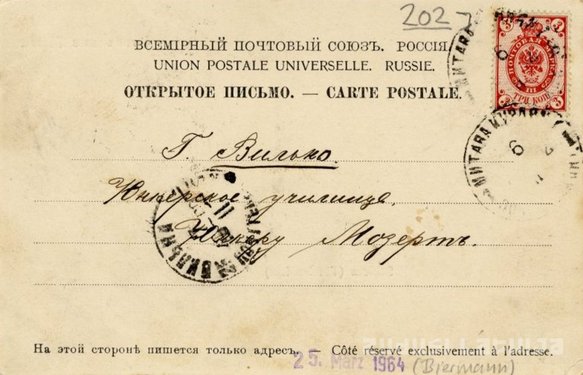 2027
ВСЕМІРНЫЙ ПОЧТОВЫЙ СОЮЗЪ. РОССІЯ
UNION POSTALE UNIVERSELLE. RUSSIE.
ОТКРЫТОЕ ПИСЬМО. — CARTE POSTALE.
3 3
ПОЧТОВАЯ МАРКА
ТРИ КОП.
3 3
МИТАВА
6
МИТАВА КУРЛЯН
6
Г Вильно.
Юнкерское училище
Юнкеру Модертъ.
ВИЛЬНА
11
На этой сторонѣ пишется только адресъ.
Côté réservé exclusivement à l'adresse.
25. März 1964 (Biermann)